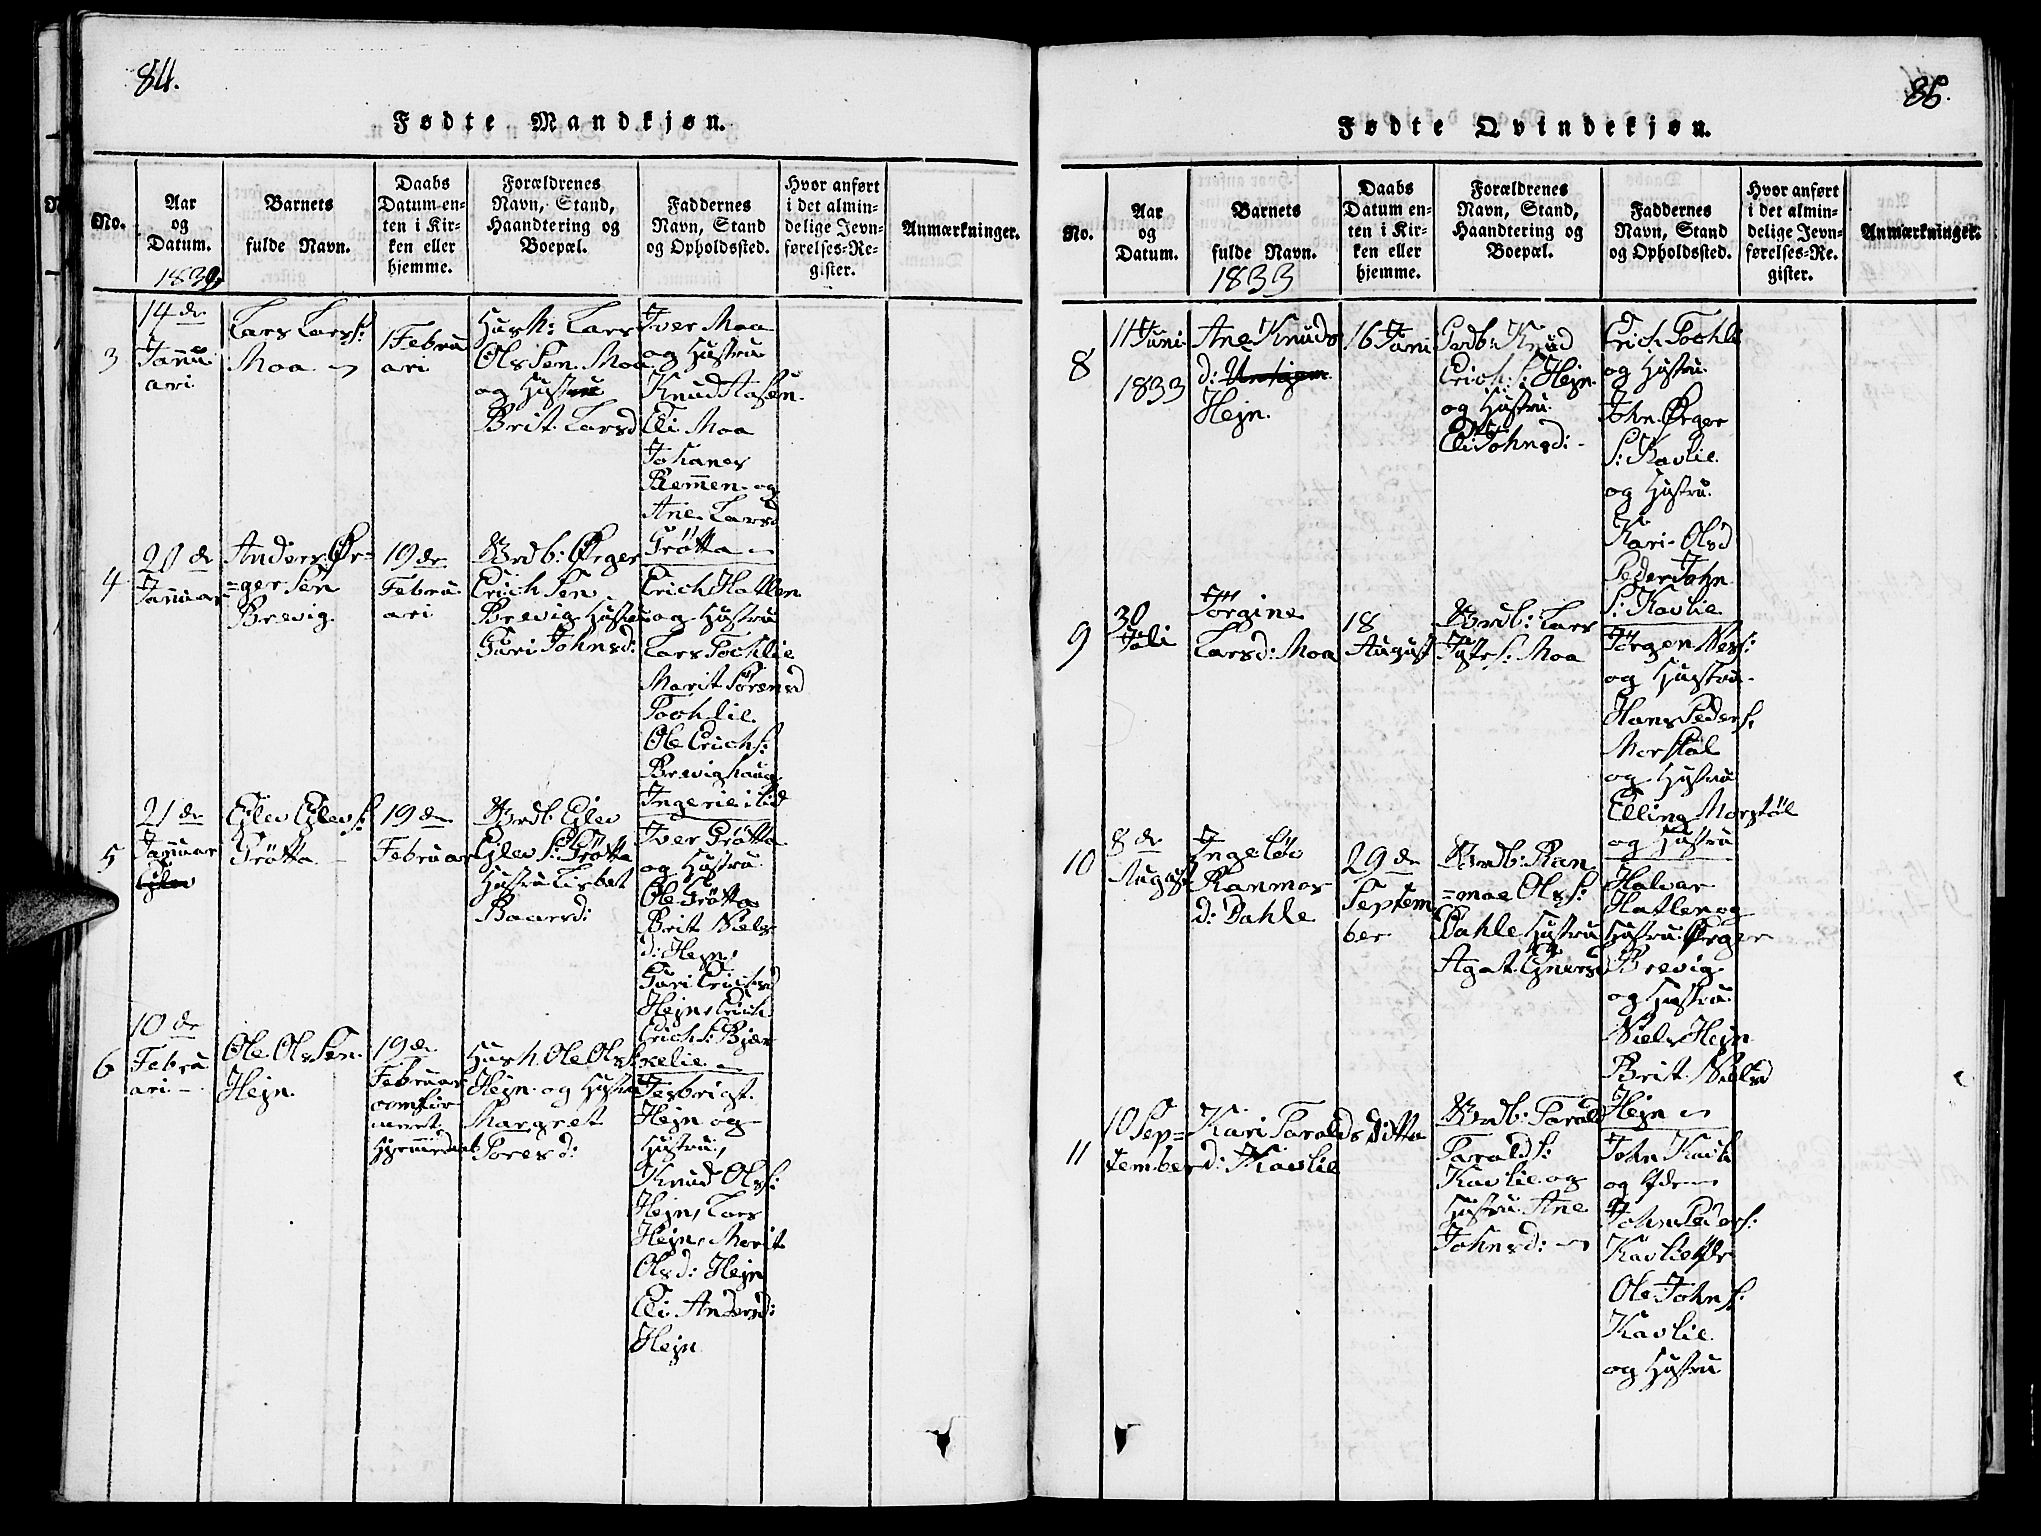 84.
Fødte Mandkjøn.
No.
Aar
og
Datum.
1834
Barnets
fulde Navn.
Daabs
Datum en-
ten i Kir-
ken eller
hjemme.
Forældrenes
Navn, Stand,
Haandtering og
Boepæl.
Faddernes
Navn, Stand
og Opholdssted.
Hvor anført
i det almin-
delige Jevn-
førelses-Re-
gister.
Anmærkninger.
3
14 de
Janu
ari
Lars Larss:
Moa
1 Febru
ari
Husm: Lars
Ols Sen Moa
og Hustru
Brit Larsd
Iver Moa
og Hustru
Knud Aasen
Eli Moa
Johanes
Remmen og
Ane Larsd
Grötta
4
20 de
Januar
Anders Ør=
=ger Sen
Brevig.
19 de
Febru
ari
Brdb: Ørger
Erich Sen
Brevig Hustru
Guri Johnsd:
Erich Hatlen
og Hustru
Lars Tochlie
Marit Sörensd
Tochlie
Ole Erichs:
Brevighaug
Ingerie i Lid
5
21 de
Januar
Ejlev Ejlevs:
Grötta
19 de
Februar
Brdb: Ejlev
Ejlev S: Grötta
Hustru Lisbet
Baarsd:
Iver Grötta
og Hustru
Ole Grötta
Brit Niels
d: Hejn,
Guri Erichsd
Hejn, Erich
Erichs: Bjør
kelie
6
10 de
Febru
ari
Ole Ols Sen
Hejn.
19 de
Februar
confir
meret
Hjemmedaab
Husm. Ole Ols:
Hejn og Hustru
Margret
Toresd:
Ingbrigt
Hejn og
Hustru,
Knud Ols:
Hejn, Lars
Hejn, Marit
Olsd: Hejn
Eli Andersd:
Hejn
85.
Fødte Qvindekjøn.
No.
Aar
og
Datum.
Barnets
fulde Navn.
1833
Daabs
Datum en-
ten i Kir-
ken eller
hjemme.
Forældrenes
Navn, Stand,
Haandtering og
Boepæl.
Faddernes
Navn, Stand
og Opholdssted.
Hvor anført
i det almin-
delige Jevn-
førelses-Re-
gister.
Anmærkninger.
8
11 Juni
1833
Ane Knuds
d:
Hejn.
16 Juni
Brdb: Knud
Erich: S: Hejn
og Hustru
Eli Johnsd:
Erich Tochli
og Hustru
John Ørger
S: Kavlie
og Hustru.
Kari Olsd
Peder John
S: Kavlie
9
30
Juli
Jörgine
Larsd: Moa
18
August
Brdb: Lars
Moa
Jörgen Ness:
og Hustru
Hans Peders:
Morstöl
og Hustru
Elling Morstöl
og Hustru
10
8 de
August
Ingeløv
Ranmos
d: Dahle
29 de
Septem
ber
Brdb: Ran
=moe Ols:
Dahle Hustru
Agat Ejnarsd
Halvar
Hatlen og
Hustru Ørger
Brevig
og Hustru
Niels Hejn
Brit Nielsd
Hejn
11
10 Sep=
tember
Kari Tarolds
d: Kavlie
ditto
Brdb: Tarald
Taralds:
Kavlie og
Hustru Ane
Johnsd:
John Kavli
og
John Peders:
Kavlie
Ole Johns:
Kavlie
og Hustru